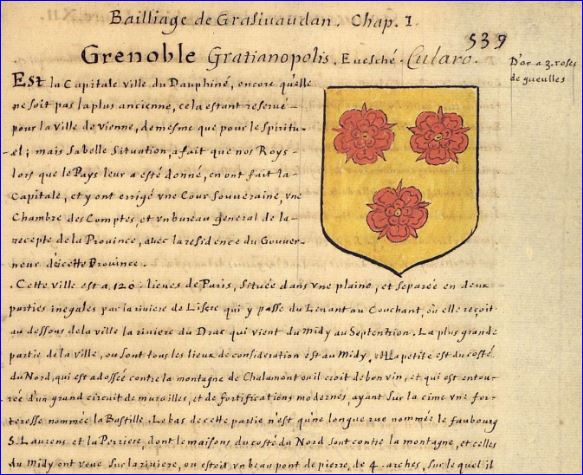 Bailliage de Grasivaudan. Chap. I.
539
Grenoble Gratianopolis. Evesché. Cularo.
D'or a 3. roses
de gueulles
Est la Capitale ville du Dauphiné, encore qu'elle
ne soit pas la plus ancienne, cela estant reservé
pour la ville de vienne, demesme que pour le spiritu-
el; mais sa belle Situation, a fait que nos Roys
lors que le Pays leur a esté donné, en ont fait la
Capitale, et y ont errigé vne Cour Souueraine, vne
Chambre des Comptes, et vn bureau general de la
recepte de la Prouince, avec la residence du Gouver-
neur de cette Prouince.
Cette ville est a 120. lieues de Paris, Située dans vne plaine, et separée en deux
parties inegales par la riviere de Lisere qui y passe du Leuant au Couchant, où elle reçoit
au dessous de la ville la riuiere du Drac qui vient du Midy au Septentrion. La plus grande
partie de la ville, ou sont tous les lieux de consideration est au Midy, et la petite est du costé
du Nord, qui est adossée contre la montagne de Chalamont ou il croit de bon vin, et qui est entou-
rée d'un grand circuit de murailles, et de fortifications modernes, ayant Sur la cime vne for-
teresse nommée la Bastille. Le bas de cette partie n'est qu'une longue rue nommée le fauxbourg
S. Laurens, et la Perriere, dont le maisons du costé du Nord sont contre la montagne, et celles
du Midy ont veue Sur la riuiere, ou estoit vn beau pont de pierre, de 4. arches, Sur lequel il